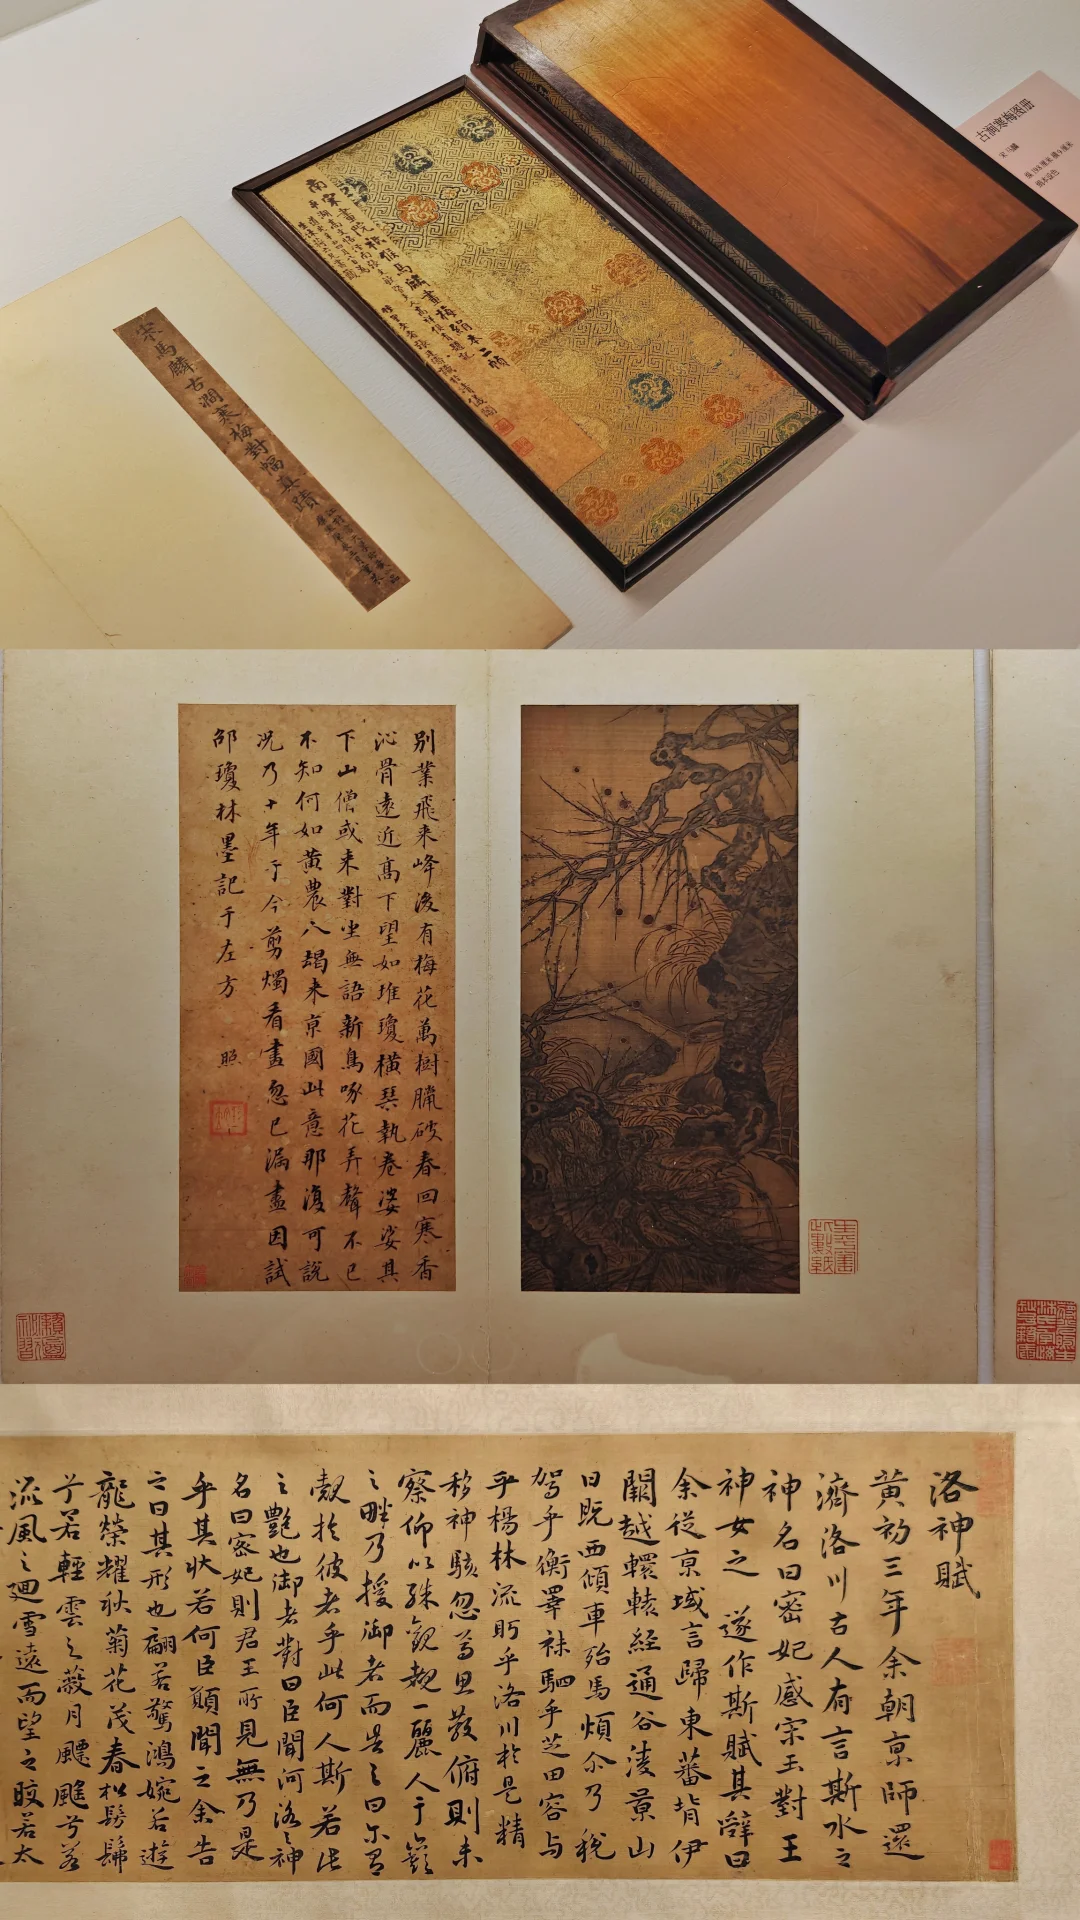 古涧寒梅图册
宋 马麟
绢本设色
南宋畫院祗候馬麟畫梅絹本二幀
宋馬麟古澗寒梅對幅真蹟
別業飛来峰後有梅花萬樹臘破春回寒香
沁骨遠近髙下望如堆瓊橫琴執卷婆娑其
下山僧或来對坐無語新鳥啄花弄聲不已
不知何如黄農八朅来京國此意那復可說
况乃十年于今剪燭看畫忽已漏盡因試
邵瓊林墨記于左方 照
洛神賦
黄初三年余朝京師還
濟洛川古人有言斯水之
神名曰宓妃感宋玉對王
神女之 遂作斯賦其辭曰
余従京域言歸東蕃背伊
闕越轘轅経通谷淩景山
日既西傾車殆馬煩尒乃稅
駕乎衡睪秣駟乎芝田容与
乎楊林流盻乎洛川扵是精
移神駭忽焉思散俯則未
察仰以殊觀覩一麗人于巖
之畔乃援御者而告之曰尔有
觀扵彼者乎此何人斯若此
之艶也御者對曰臣聞河洛之神
名曰宓妃則君王所見無乃是
乎其状若何臣願聞之余告
之曰其形也翩若驚鴻婉若遊
龍榮耀秋菊花茂春松髣髴
兮若輕雲之蔽月飄颻兮若
流風之迴雪遠而望之皎若太